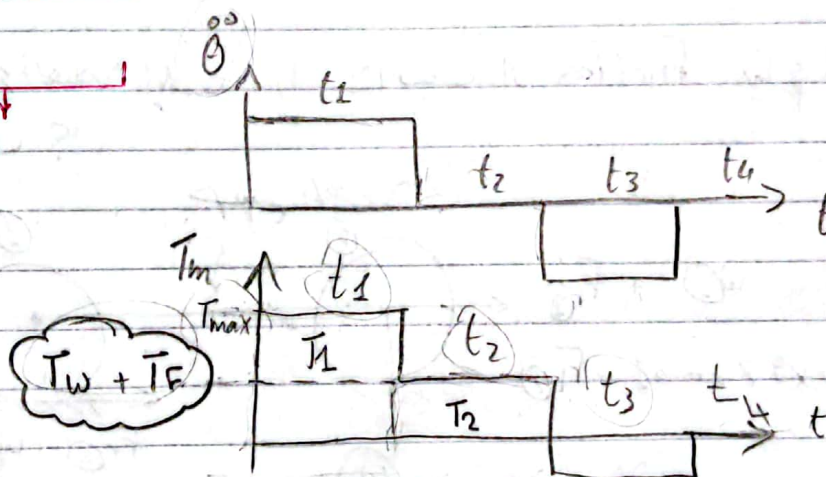 θ̈
t1
t2 t3 t4
t
Tm
t1
Tmax
T1
t2
TW + TF
t3 t4
T2
t